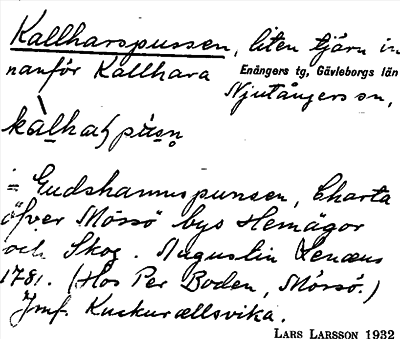 Kallharspussen, liten tjärn in
nanför Kallhara Enångers tg, Gävleborgs län
Njutångers sn,
= Gudshamnspunsen, Charta
öfver Mössö bys Hemägor
och Skog. Augustin Lenæus
1781. (Hos Per Boden, Mössö.)
Jmf. Kuckuraellsvika.
LARS LARSSON 1932